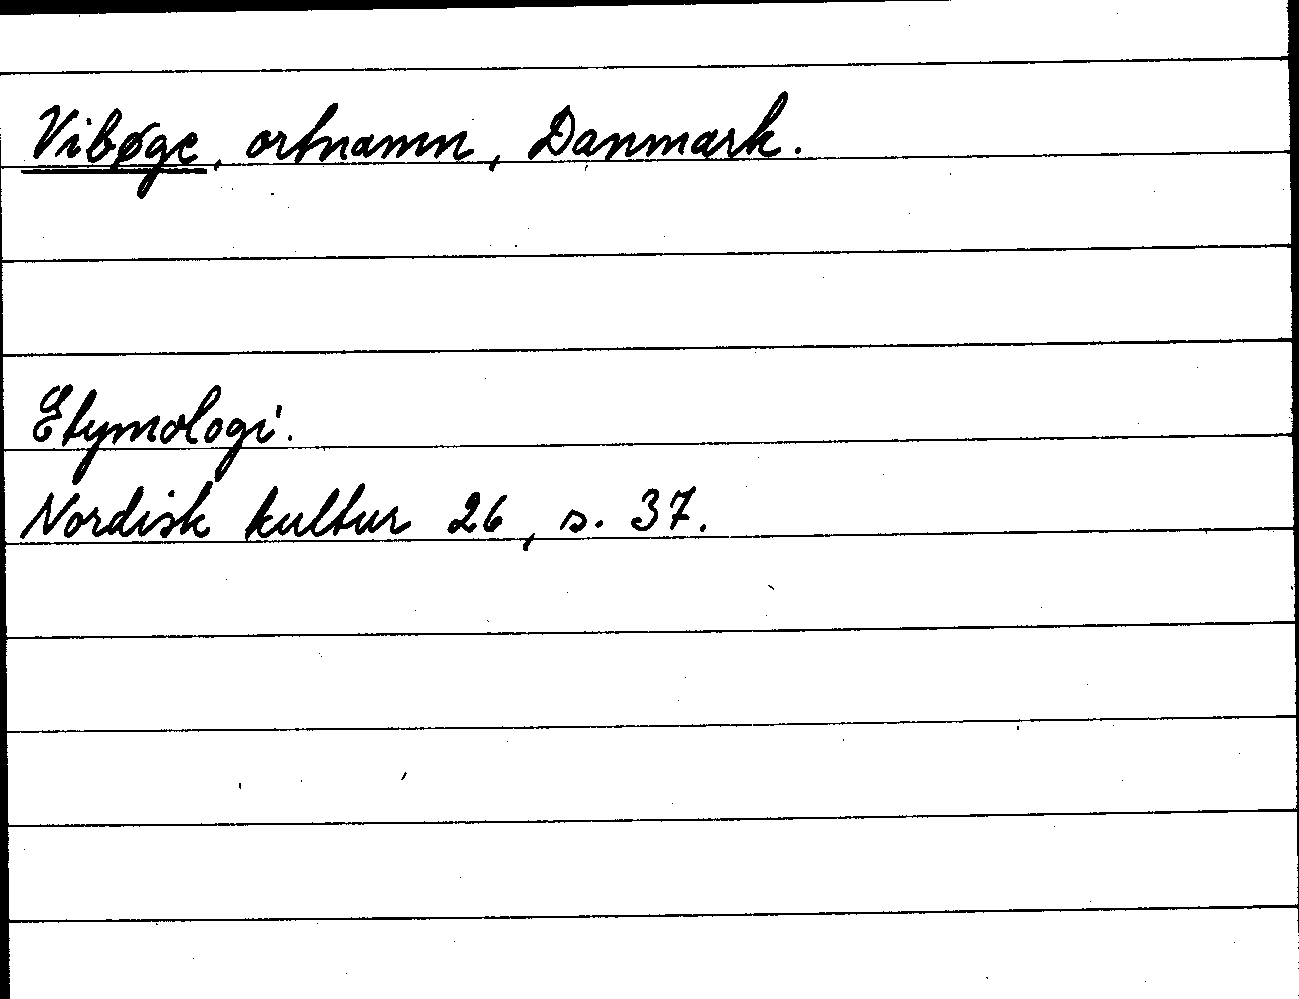 Vibøge, ortnamn, Danmark.
Etymologi.
Nordisk kultur 26, s. 37.